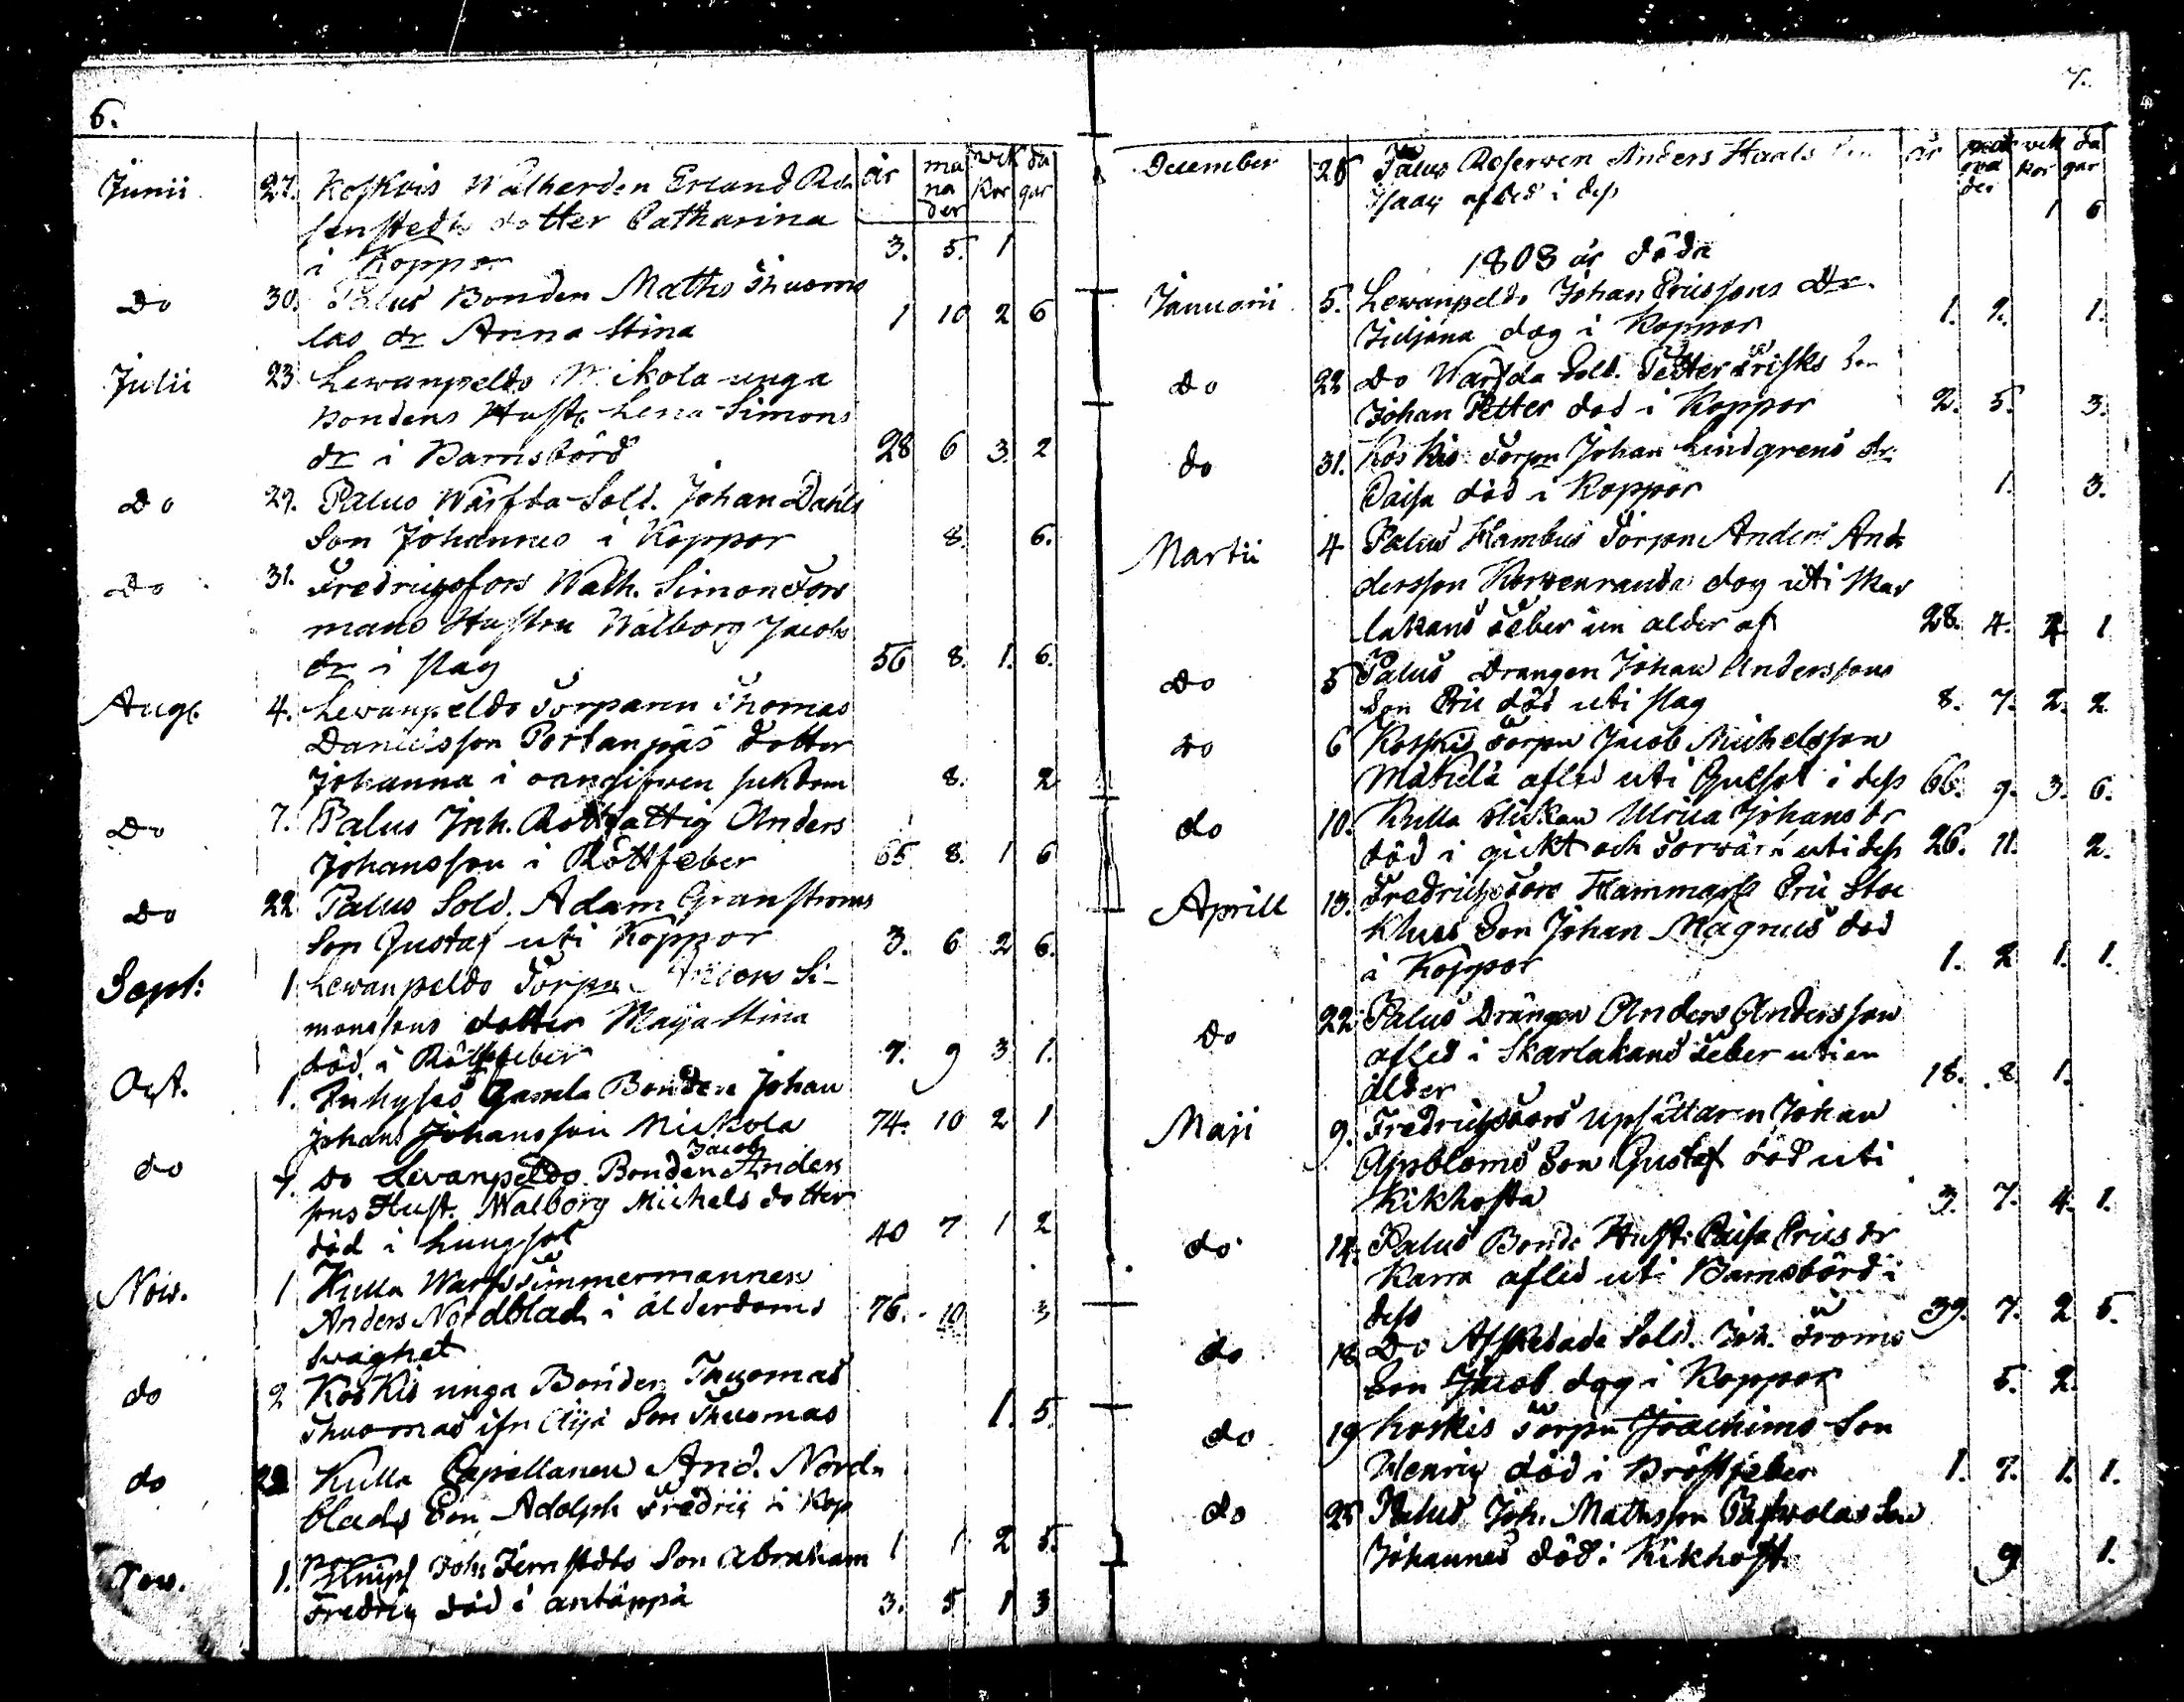 6.
år månader wekor dagar
Junii 27. Koskis Walherden Erland Ro
senstedts dotter Catharina
i Koppor 3. 5. 1
Do 30. Palus Bonden Maths Thuoma
las dr Anna Stina 1 10 2 6
Julii 23 Lewanpeldo Nikola unga
Bondens Hustr. Lena Simons
dr i Barnsbörd 28 6 3 2
Do 29. Palus Warfda Sold. Johan Dahls
Son Johannes i Koppor 8. 6.
Do 31. Fredrigsfors Walh. Simon Fors
mans Hustru Walborg Jacobs
dr i slag 56 8. 1. 6.
Aug. 4. Lewanpeldo Torparen Thomas
Danielsson Portanpäs dotter
Johanna i oangifwen sukdom 8. 2
Do 7. Palus Inh. Rottfattig Anders
Johansson i Röttfeber 65 8. 1 6
Do 22 Palus Sold. Adam Granströms
Son Gustaf uti Koppor 3. 6 2 6.
Sept: 1 Lewanpeldo Torpn Si-
monssons dotter Maija Stina
död i Röttfeber 7. 9 3 1.
Oct. 1. Gamla Bonden Johan
Johans Johansson Nickola 74. 10 2 1
do 7. do Lewanpeldo Bonden Jacob Anders
sons Hust. Walborg Michels dotter
död i Lungsot 40 7 1 2
Now. 1 Kulla Warfstimmermannen
Anders Nordblad i ålderdoms 76. 10 3
swaghet
do 2 Koskis unga Bonden Thuomas
Thuomas Son Thuomas 1. 5.
do 22 Kulla Capellanen And. Nord-
blads Son Adolph Fredric i Kop
por 1 1 2 5.
1. Joh. Fernstedts Son Abraham
Fredric död i antäppa 3. 5 1 3
7.
år månader wekor dagar
December 28 Palus Reserwen Anders Haals Son
Isaac afled i dess 1 6
1803 år döda
Januarii 5. Lewanpeldo Johan Ericssons dr.
dog i Koppor 1. 9. 1.
do 22 do Warfda Sold. Petter Frisks Son
Johan Petter död i Koppor 2. 5. 3.
do 31. Koskis Torpn Johan Lindgrens dr.
Caisa död i Koppor 1. 3.
Martii 4 Palus Hambus Torpn Anders An-
dersson Korwenranda dog uti Skar
lakans feber i en ålder af 28. 4. 2 1
do 5 Palus Drängen Johan Anderssons
Son Eric död uti slag 8. 7. 2. 2
do 6 Koskis Torpn Jacob Michelsson
Mäkilä afled uti Gulsot i dess 66. 9. 3. 6.
do 10. Kulla Flickan Ulrica Johans dr
död i gickt och Torwärk uti dess 26. 11. 2.
Aprill 13. Fredricsfors Hammars. Eric Sto
Son Johan Magnus död
i Koppor 1. 2 1. 1.
Do 22 Palus Drängen Anders Andersson
afled i Skarlakans feber uti en
ålder 18. 8. 1.
Maji 9. Fredricsfors Upsättaren Johan
Aspbloms Son Gustaf död uti
Kikhosta 3. 7. 4. 1.
do 14. Palus Bonde Hustr. Caisa Erics dr
Karra afled uti Barnsbörd i
dess 39. 7. 2 5.
do 18 Do Afskedade Sold. Joh. Froms
Son Jacob dog i Koppor 5. 2.
do 19 Koskis Torpn Joachims Son
Henric död i Bröstfeber 1. 9. 1. 1.
do 25 Palus Joh. Mathsson Son
Johannes död i Kikhosta 9 1.